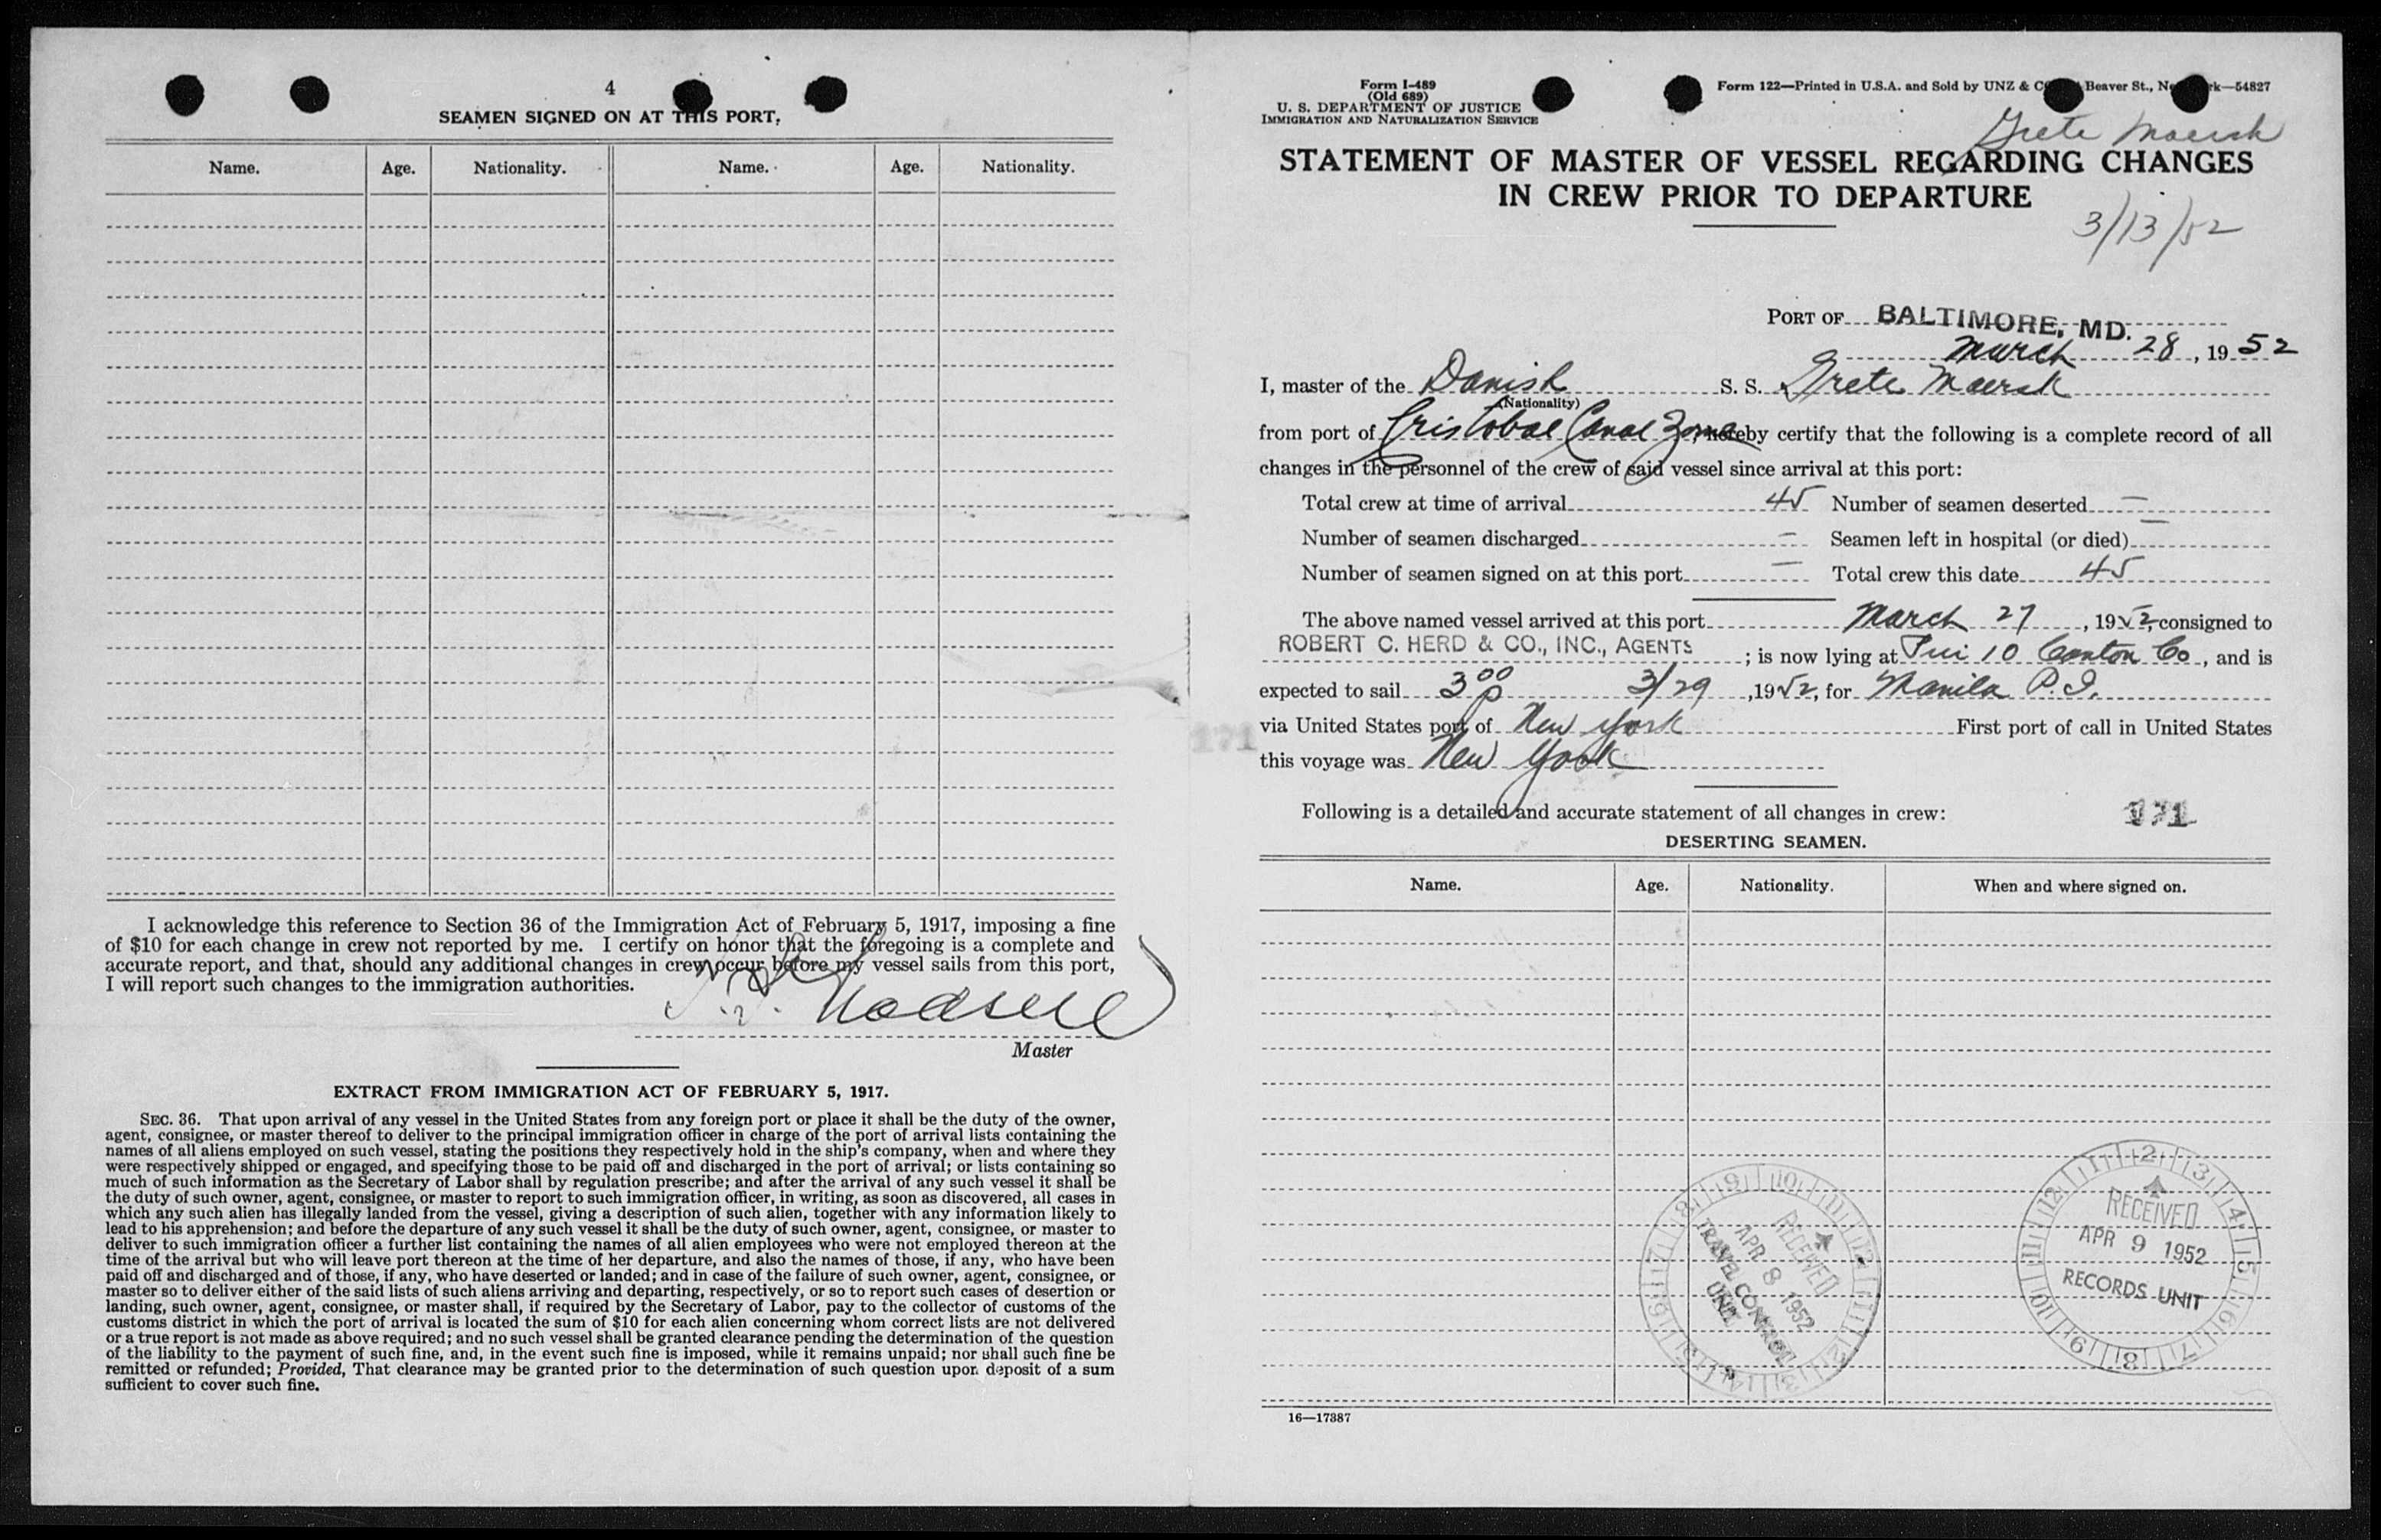 4
SEAMEN SIGNED ON AT THIS PORT.
Name. Age. Nationality. Name. Age. Nationality.
I acknowledge this reference to Section 36 of the Immigration Act of February 5, 1917, imposing a fine
of $10 for each change in crew not reported by me. I certify on honor that the foregoing is a complete and
accurate report, and that, should any additional changes in crew occur before my vessel sails from this port,
I will report such changes to the immigration authorities.
Master
EXTRACT FROM IMMIGRATION ACT OF FEBRUARY 5, 1917.
SEC. 36. That upon arrival of any vessel in the United States from any foreign port or place it shall be the duty of the owner,
agent, consignee, or master thereof to deliver to the principal immigration officer in charge of the port of arrival lists containing the
names of all aliens employed on such vessel, stating the positions they respectively hold in the ship's company, when and where they
were respectively shipped or engaged, and specifying those to be paid off and discharged in the port of arrival; or lists containing so
much of such information as the Secretary of Labor shall by regulation prescribe; and after the arrival of any such vessel it shall be
the duty of such owner, agent, consignee, or master to report to such immigration officer, in writing, as soon as discovered, all cases in
which any such alien has illegally landed from the vessel, giving a description of such alien, together with any information likely to
lead to his apprehension; and before the departure of any such vessel it shall be the duty of such owner, agent, consignee, or master to
deliver to such immigration officer a further list containing the names of all alien employees who were not employed thereon at the
time of the arrival but who will leave port thereon at the time of her departure, and also the names of those, if any, who have been
paid off and discharged and of those, if any, who have deserted or landed; and in case of the failure of such owner, agent, consignee, or
master so to deliver either of the said lists of such aliens arriving and departing, respectively, or so to report such cases of desertion or
landing, such owner, agent, consignee, or master shall, if required by the Secretary of Labor, pay to the collector of customs of the
customs district in which the port of arrival is located the sum of $10 for each alien concerning whom correct lists are not delivered
or a true report is not made as above required; and no such vessel shall be granted clearance pending the determination of the question
of the liability to the payment of such fine, and, in the event such fine is imposed, while it remains unpaid; nor shall such fine be
remitted or refunded; Provided, That clearance may be granted prior to the determination of such question upon deposit of a sum
sufficient to cover such fine.
Form I-489
(Old 689)
U. S. DEPARTMENT OF JUSTICE
IMMIGRATION AND NATURALIZATION SERVICE
Form 122—Printed in U.S.A. and Sold by UNZ & Beaver St., 54827
Grete Maersk
STATEMENT OF MASTER OF VESSEL REGARDING CHANGES
IN CREW PRIOR TO DEPARTURE
3/13/52
PORT OF BALTIMORE, MD.
March 28, 1952
I, master of the Danish S. S. Grete Maersk
(Nationality)
from port of Cristobal Canal Zone hereby certify that the following is a complete record of all
changes in the personnel of the crew of said vessel since arrival at this port:
Total crew at time of arrival 45 Number of seamen deserted —
Number of seamen discharged — Seamen left in hospital (or died) —
Number of seamen signed on at this port — Total crew this date 45
The above named vessel arrived at this port March 27, 1952, consigned to
ROBERT C. HERD & CO., INC., AGENTS ; is now lying at 10 Canton Co, and is
expected to sail 3 00 p 3/29, 1952, for Manila P.I.
via United States port of New York First port of call in United States
this voyage was New York
171
Following is a detailed and accurate statement of all changes in crew: 171
DESERTING SEAMEN.
Name. Age. Nationality. When and where signed on.
RECEIVED
APR 8 1952
TRAVEL CONTROL
UNIT
RECEIVED
APR 9 1952
RECORDS UNIT
16—17387